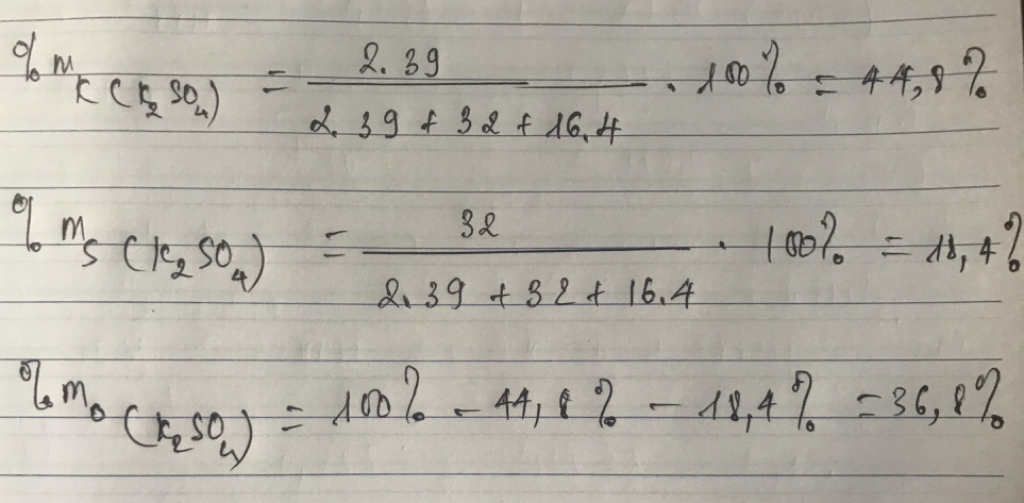 %m K(K₂SO₄) = 2.39 / (2.39 + 32 + 16.4) . 100% = 44,8%
%m S(K₂SO₄) = 32 / (2.39 + 32 + 16.4) . 100% = 18,4%
%m O(K₂SO₄) = 100% - 44,8% - 18,4% = 36,8%